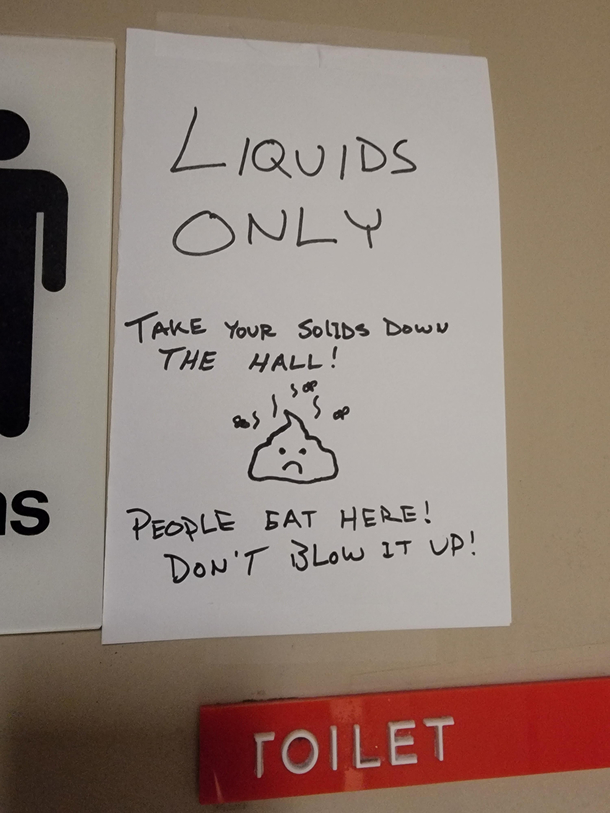 LIQUIDS
ONLY
TAKE YOUR SOLIDS DOWN
THE HALL!
PEOPLE EAT HERE!
DON'T BLOW IT UP!
s
TOILET